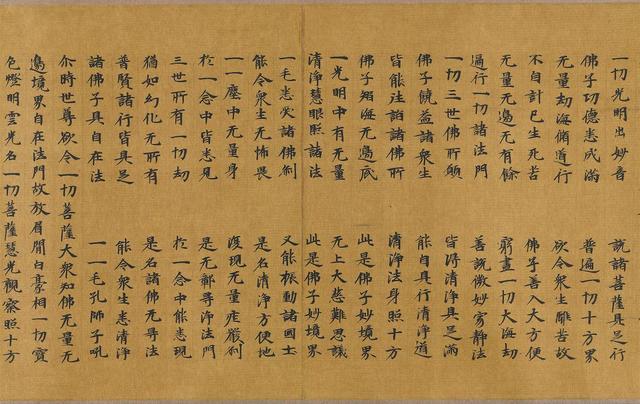 一切光明出妙音　說諸菩薩具足行
佛子功德悉成滿　普遍一切十方界
无量劫海脩道行　欲令衆生離苦故
不自計己生死苦　佛子善入大方便
无量无邊无有餘　窮盡一切大海劫
遍行一切諸法門　善說微妙寂静法
一切三世佛所願　皆得清淨具足滿
佛子饒益諸衆生　能自具行清淨道
皆能往詣諸佛所　清淨法身照十方
佛子智海无邊底　此是佛子妙境界
一光明中有无量　无上大悲難思議
清淨慧眼照諸法　此是佛子妙境界
一毛悉受諸佛刹　又能振動諸國土
能令衆生无怖畏　是名清淨方便地
一一塵中无量身　復現无量莊嚴刹
於一念中皆悉見　是无鄣㝵淨法門
三世所有一切劫　於一念中能悉現
猶如幻化无所有　是名諸佛无㝵法
普賢諸行皆具足　能令衆生悉清淨
諸佛子具自在法　一一毛孔師子吼
尒時世尊欲令一切菩薩大衆知佛无量无
邊境界自在法門故放眉間白毫相一切寶
色燈明雲光名一切菩薩慧光觀察照十方